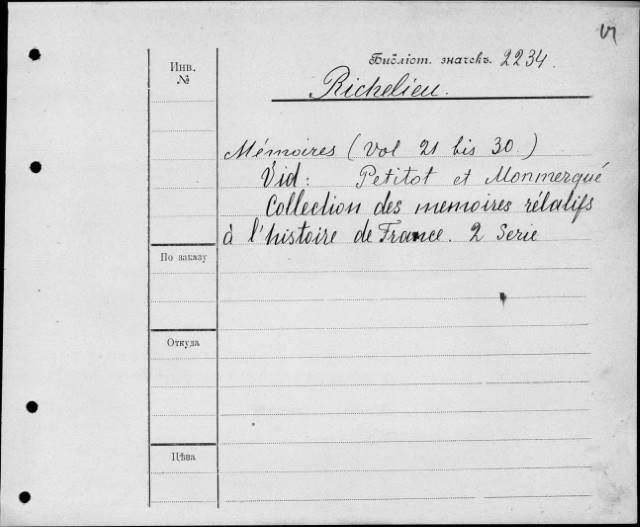 Инв. №
Библіот. значекъ. 2234.
Richelieu.
Mémoires (Vol 21 bis 30)
Vid: Petitot et Monmerqué
Collection des memoires rélatifs
à l'histoire de France. 2 Serie
По заказу
Откуда
Цѣна